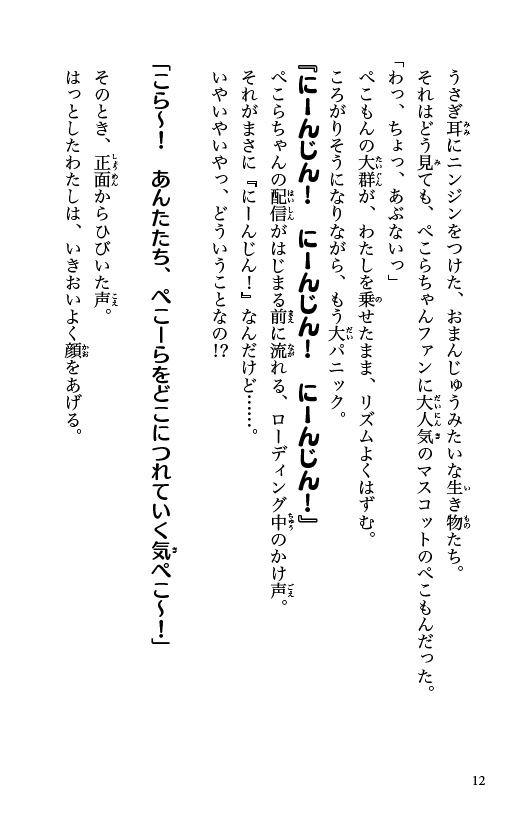 うさぎ耳にニンジンをつけた、おまんじゅうみたいな生き物たち。
それはどう見ても、ぺこらちゃんファンに大人気のマスコットのぺこもんだった。
「わっ、ちょっ、あぶないっ」
ぺこもんの大群が、わたしを乗せたまま、リズムよくはずむ。
ころがりそうになりながら、もう大パニック。
『にーんじん！　にーんじん！　にーんじん！』
ぺこらちゃんの配信がはじまる前に流れる、ローディング中のかけ声。
それがまさに『にーんじん！』なんだけど……。
いやいやいやっ、どういうことなの!?
「こら〜！　あんたたち、ぺこーらをどこにつれていく気ぺこ〜！」
そのとき、正面からひびいた声。
はっとしたわたしは、いきおいよく顔をあげる。
12